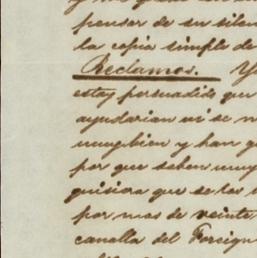 pensar de su silen
la copia simple de
Reclamos. Y
estoy persuadido que
ayudarian ni se n
muy bien y han q
por que saben muy
quisiera que se les
por mas de veinte
canalla del Foreign